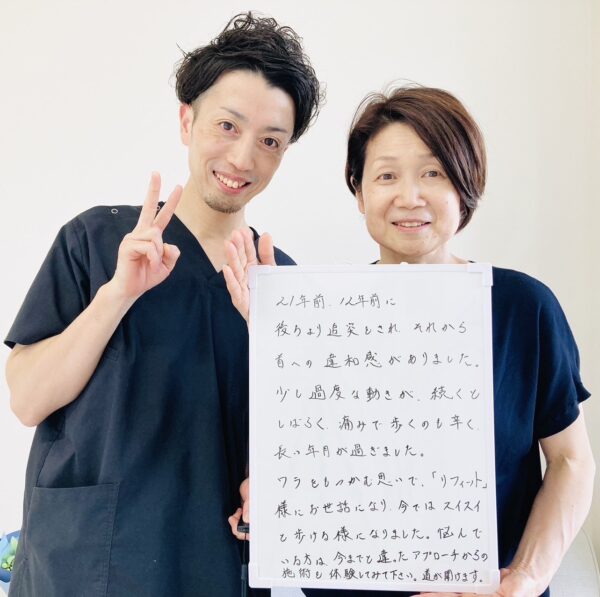 21年前、12年前に
後ろより追突をされ それから
首への違和感がありました。
少し過度な動きが、続くと
しばらく、痛みで歩くのも辛く、
長い年月が過ぎました。
ワラをもつかむ思いで、「リフィート」
様にお世話になり、今ではスイスイ
と歩ける様になりました。悩んで
いる方は、今までと違ったアプローチからの
施術も体験してみて下さい。道が開けます。